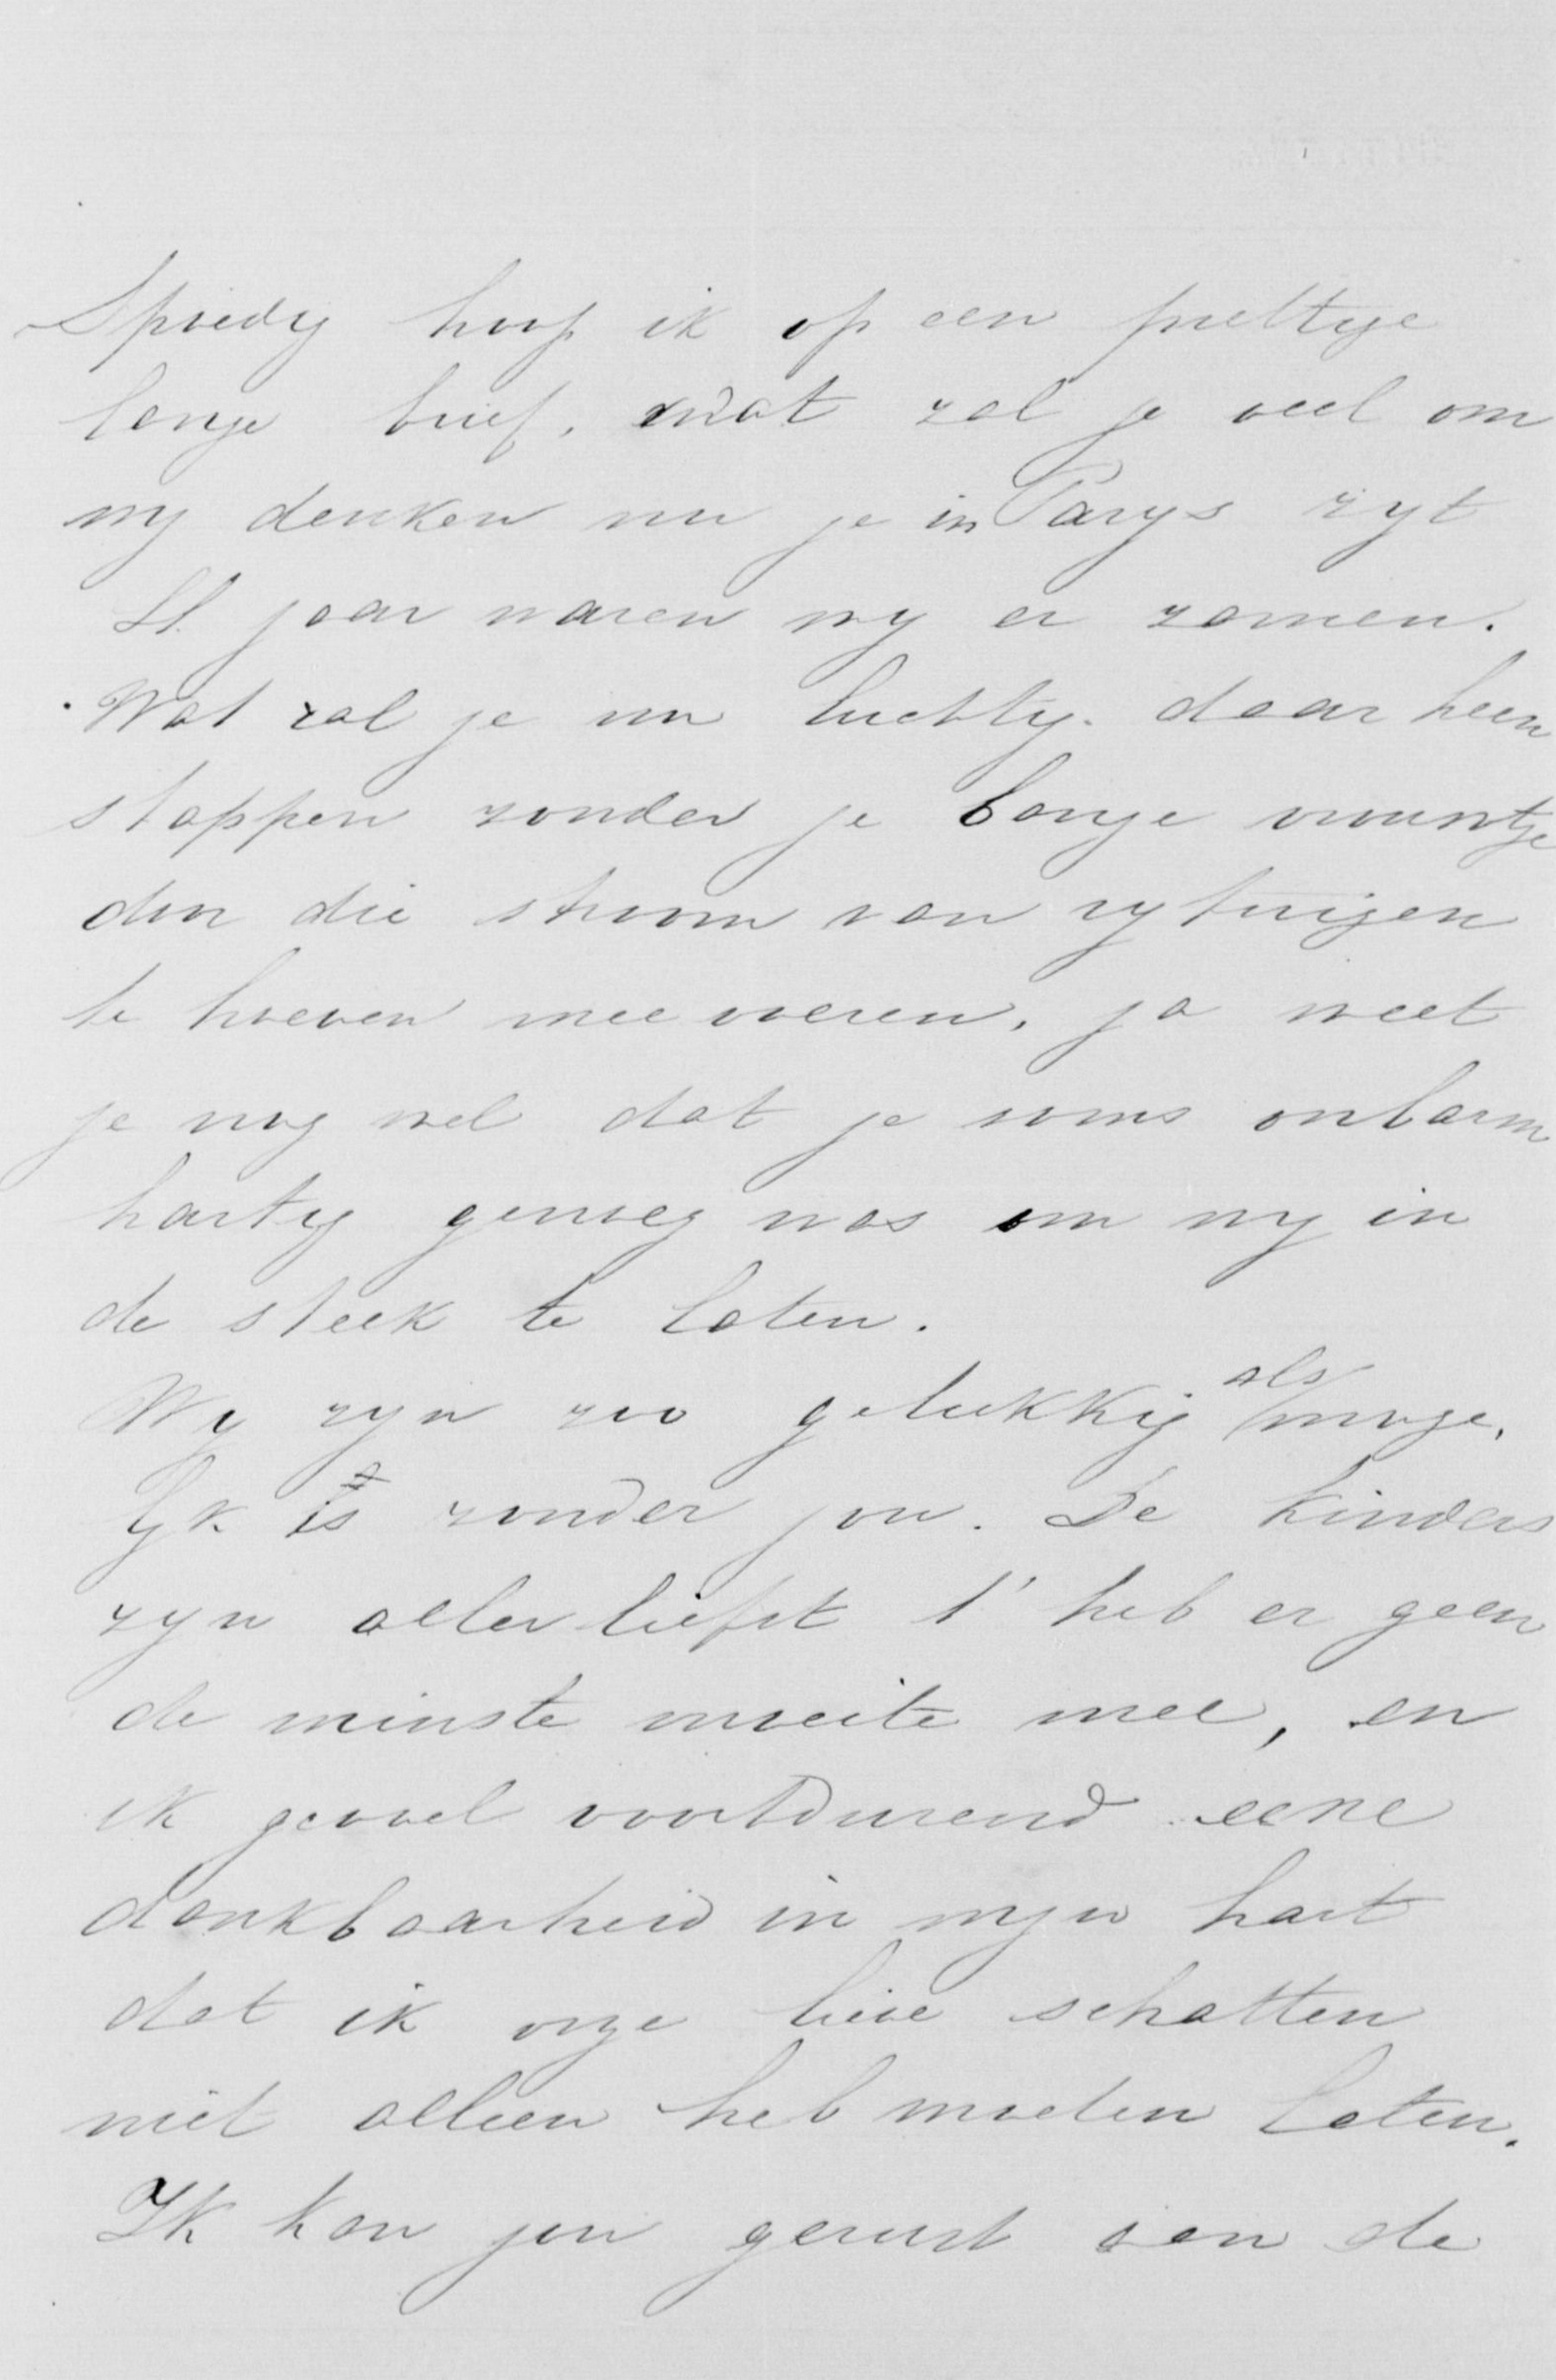 Spoedig hoop ik op een prettige
lange brief, wat zal je veel om
my denken nu je in Parys zyt
Ll. jaar waren wy er zamen.
Wat zal je nu luchtig daar heen
stappen zonder je bange vrouwtje
door die stroom van rytuigen
te hoeven mee voeren, ja weet
je nog wel dat je soms onbarm
hartig genoeg was om my in
de steek te laten.
Wy zyn zoo gelukkig als moge,
lyk is zonder jou. De kinders
zyn allerliefst 'k heb er geen
de minste moeite mee, en
ik gevoel voortdurend eene
dankbaarheid in myn hart
dat ik onze lieve schatten
niet alleen heb moeten laten.
Ik kan jou gerust aan de